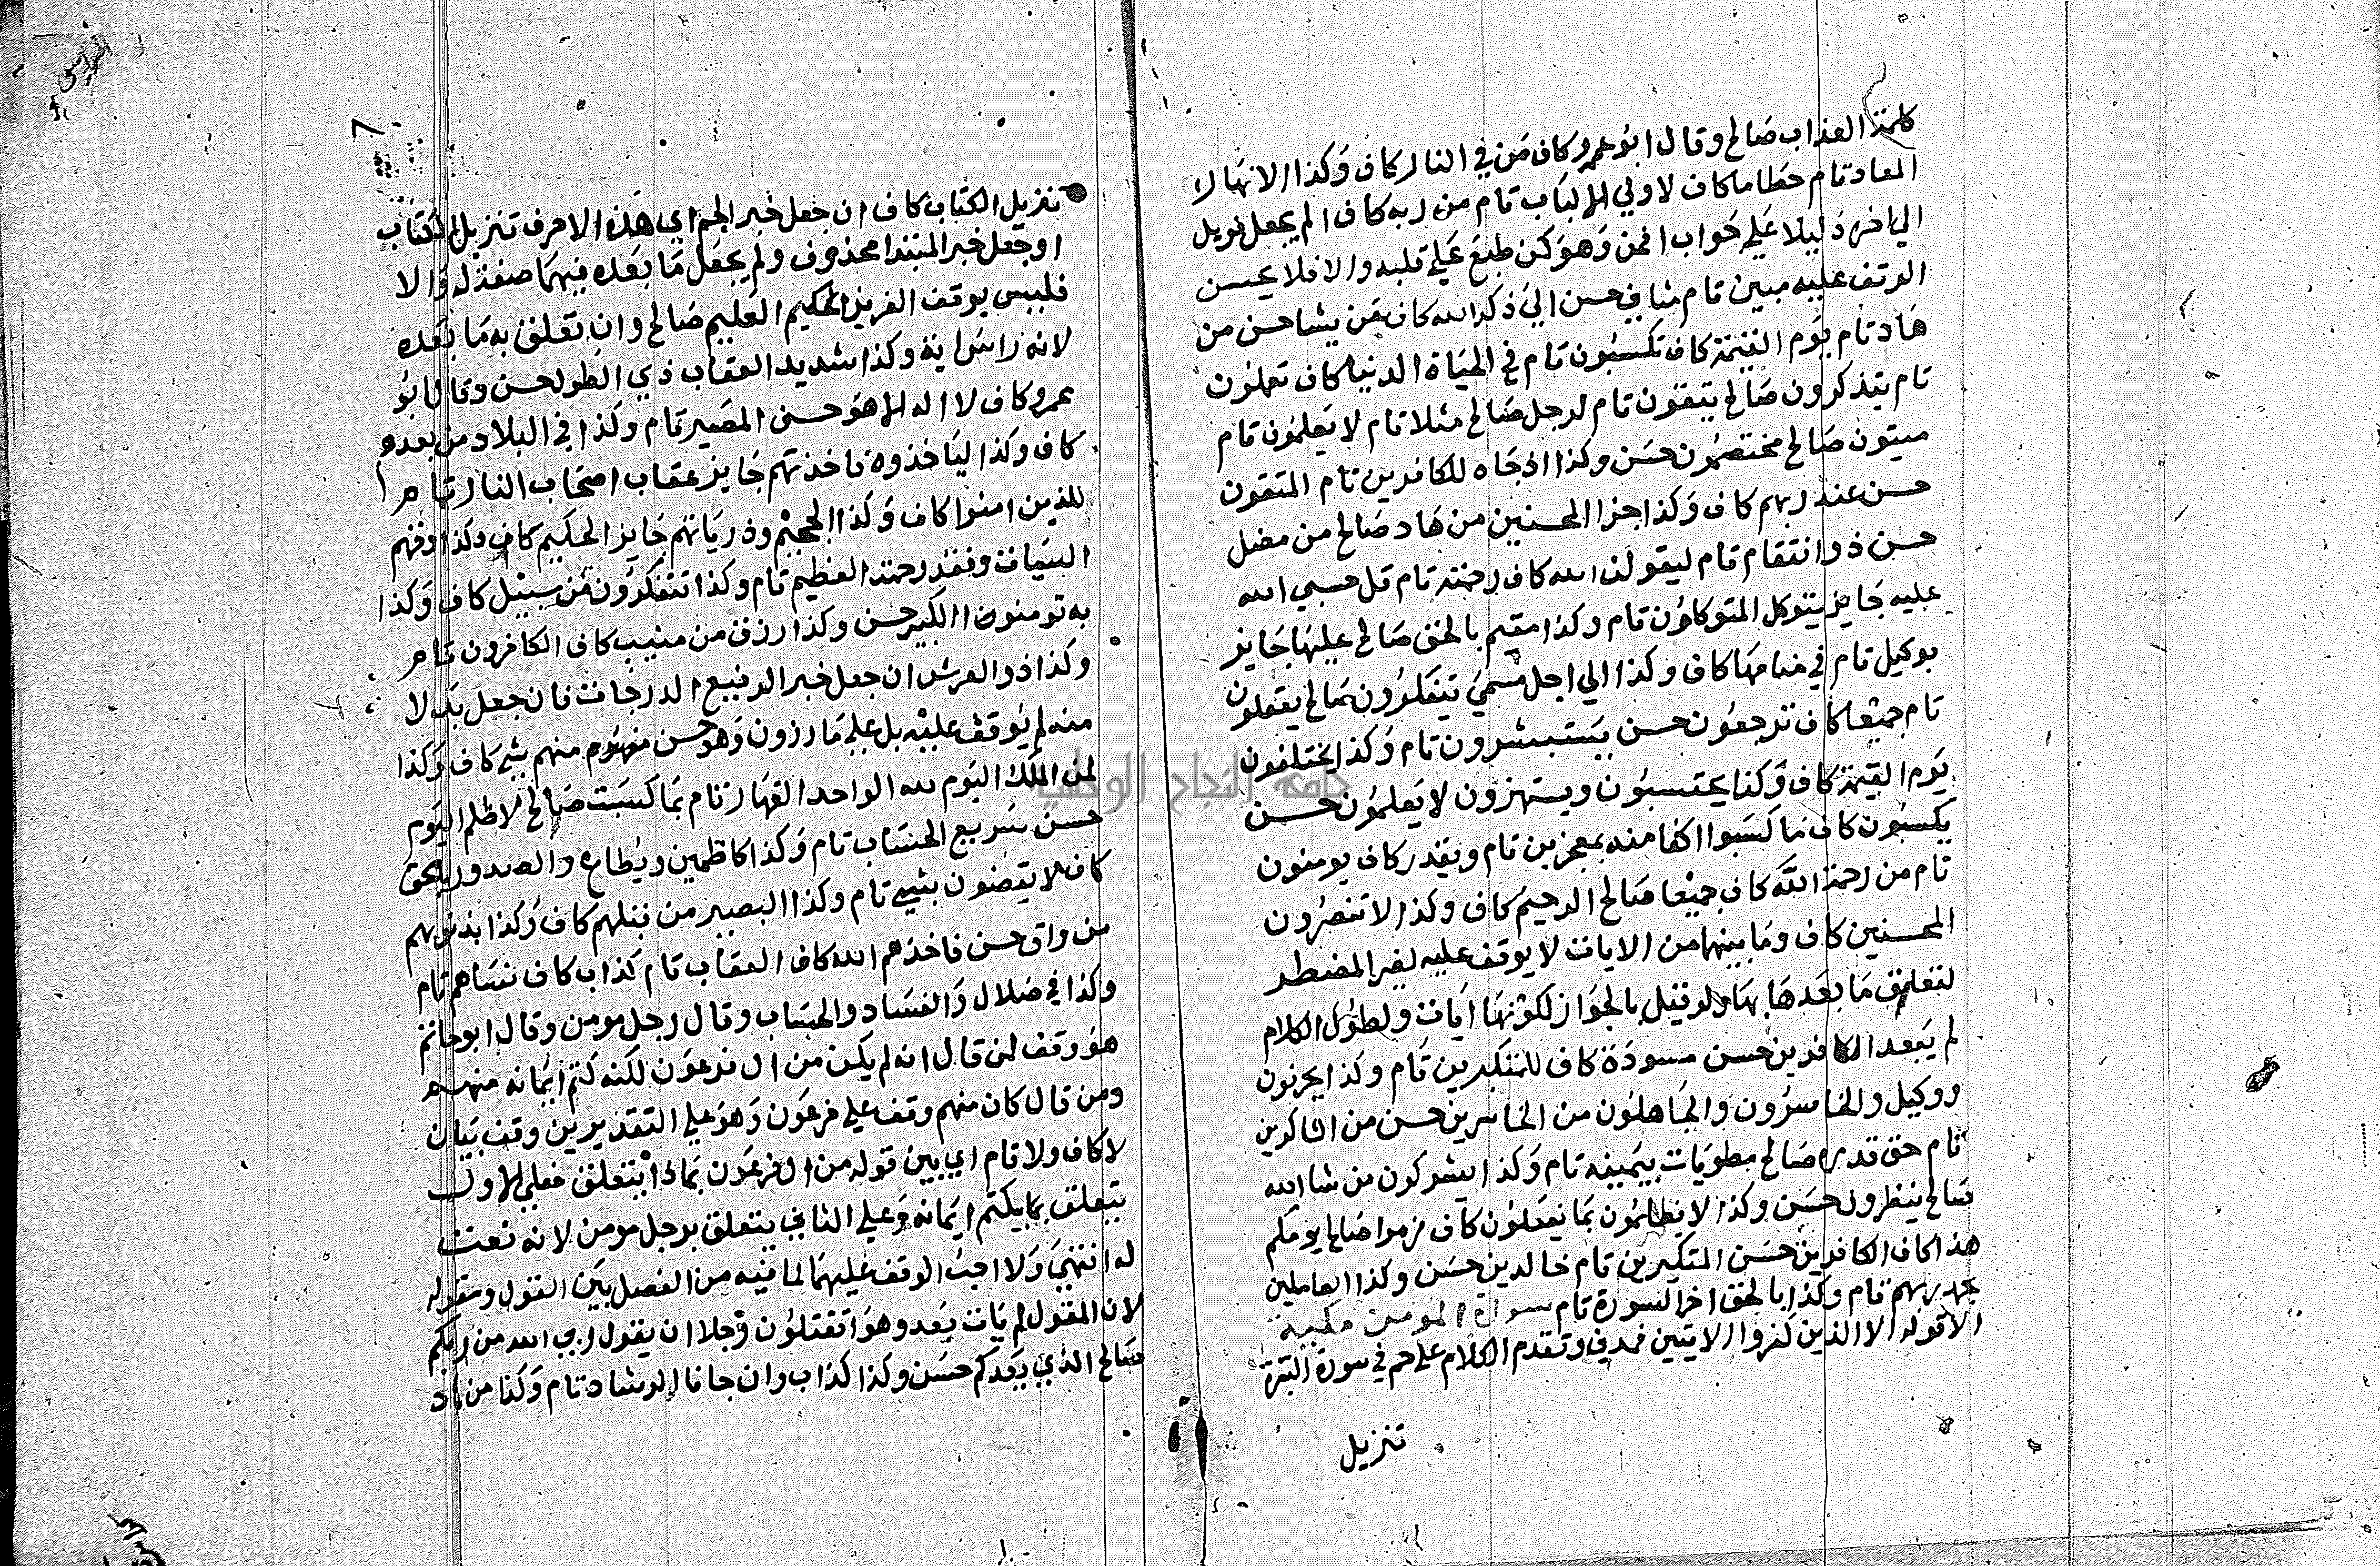 كلمة العذاب صالح وقال ابو عمرو كاف من في النار كاف وكذا الانهار
المعاد تام حطاما كاف لاولي الالباب تام من ربه كاف ان لم يجعل فويل
الي اخره دليلا علي جواب افمن وهو كمن طبع علي قلبه والا فلا يحسن
الوقف عليه مبين تام مثاني حسن الي ذكر الله كاف من يشا حسن من
هاد تام يوم القيمة كاف تكسبون تام في الحياة الدنيا كاف
تام يتذكرون صالح يتقون تام لرجل صالح مثلا تام لا يعلمون تام
ميتون صالح تختصمون حسن وكذا اذ جاه للكافرين تام المتقون
حسن عند ربهم كاف وكذا جزا المحسنين من هاد صالح من مضل
حسن ذو انتقام تام ليقولن الله كاف رحمته تام قل حسبي الله
عليه جايز يتوكل المتوكلون تام وكذا مقيم بالحق صالح عليها جايز
بوكيل تام في منامها كاف وكذا الي اجل مسمي يتفكرون صالح يعقلون
تام جميعا كاف ترجعون حسن يستبشرون تام وكذا يختلفون
يوم القيمة كاف وكذا يحتسبون ويستهزون لا يعلمون حسن
يكسبون كاف ما كسبوا اكفا منه بمعجزين تام ويقدر كاف يومنون
تام من رحمة الله كاف جميعا صالح الرحيم كاف وكذا لا تنصرون
المحسنين كاف وما بينهما من الايات لا يوقف عليه لغير المضطر
لتعلق ما بعدها بها ولو قيل بالجواز لكونها ايات ولطول الكلام
لم يبعد الكافرين حسن مسودة كاف للمتكبرين تام وكذا يحزنون
ووكيل والخاسرون والجاهلون من الخاسرين حسن من الشاكرين
تام حق قدره صالح مطويات بيمينه تام وكذا يشركون من شا الله
صالح ينظرون حسن وكذا لا يظلمون بما يفعلون كاف زمرا صالح يومكم
هذا كاف الكافرين حسن المتكبرين تام خالدين حسن وكذا العاملين
بحمد ربهم تام وكذا بالحق اخر السورة تام سورة المومن مكية
الا قوله الا الذين كفروا الايتين فمدني وتقدم الكلام علي حم في سورة البقرة
تنزيل
تنزيل الكتاب كاف ان جعل خبر الحم اي هذه الاحرف تنزيل الكتاب
او جعل خبر المبتدا محذوف ولم يجعل ما بعده فيهما صفة له والا
فليس بوقف العزيز الحكيم العليم صالح وان تعلق به ما بعده
لانه راس اية وكذا شديد العقاب ذي الطول حسن وقال ابو
عمرو كاف لا اله الا هو حسن المصير تام وكذا في البلاد من بعدهم
كاف وكذا لياخذوه فاخذتهم جايز عقاب اصحاب النار تام
للذين امنوا كاف وكذا الجحيم وذرياتهم جايز الحكيم كاف وكذا وقهم
السيات وفقد رحمته العظيم تام وكذا فتكفرون من سبيل كاف وكذا
به تومنون الكبير حسن وكذا رزقا من ينيب كاف الكافرون تام
وكذا ذو العرش ان جعل خبر الرفيع الدرجات فان جعل بدلا
منه لم يوقف عليه بل علي بارزون وهو حسن منهم شي كاف وكذا
لمن الملك اليوم لله الواحد القهار تام بما كسبت صالح لا ظلم اليوم
حسن سريع الحساب تام وكذا كاظمين ويطاع والصدور بالحق
كاف لا يقضون بشي تام وكذا البصير من قبلهم كاف وكذا بذنوبهم
من واق حسن فاخذهم الله كاف العقاب تام كذاب كاف نساهم تام
وكذا في ضلال والفساد والحساب وقال رجل مومن وقال ابو حاتم
هو وقف لمن قال انه لم يكن من ال فرعون لكنه كتم ايمانه منهم
ومن قال كان منهم وقف علي فرعون وهو علي التقديرين وقف بيان
لا كاف ولا تام اي بين قوله من ال فرعون بماذا يتعلق فعلي الاول
يتعلق بما يكتم ايمانه وعلي الثاني يتعلق برجل مومن لانه نعت
له انتهي ولا احب الوقف عليهما لما فيه من الفصل بين القول ومقوله
لان المقول لم يات بعد وهو اتقتلون رجلا ان يقول ربي الله من ربكم
صالح الذي يعدكم حسن وكذا كذاب وان جانا الرشاد تام وكذا من هاد
جامعة النجاح الوطنية